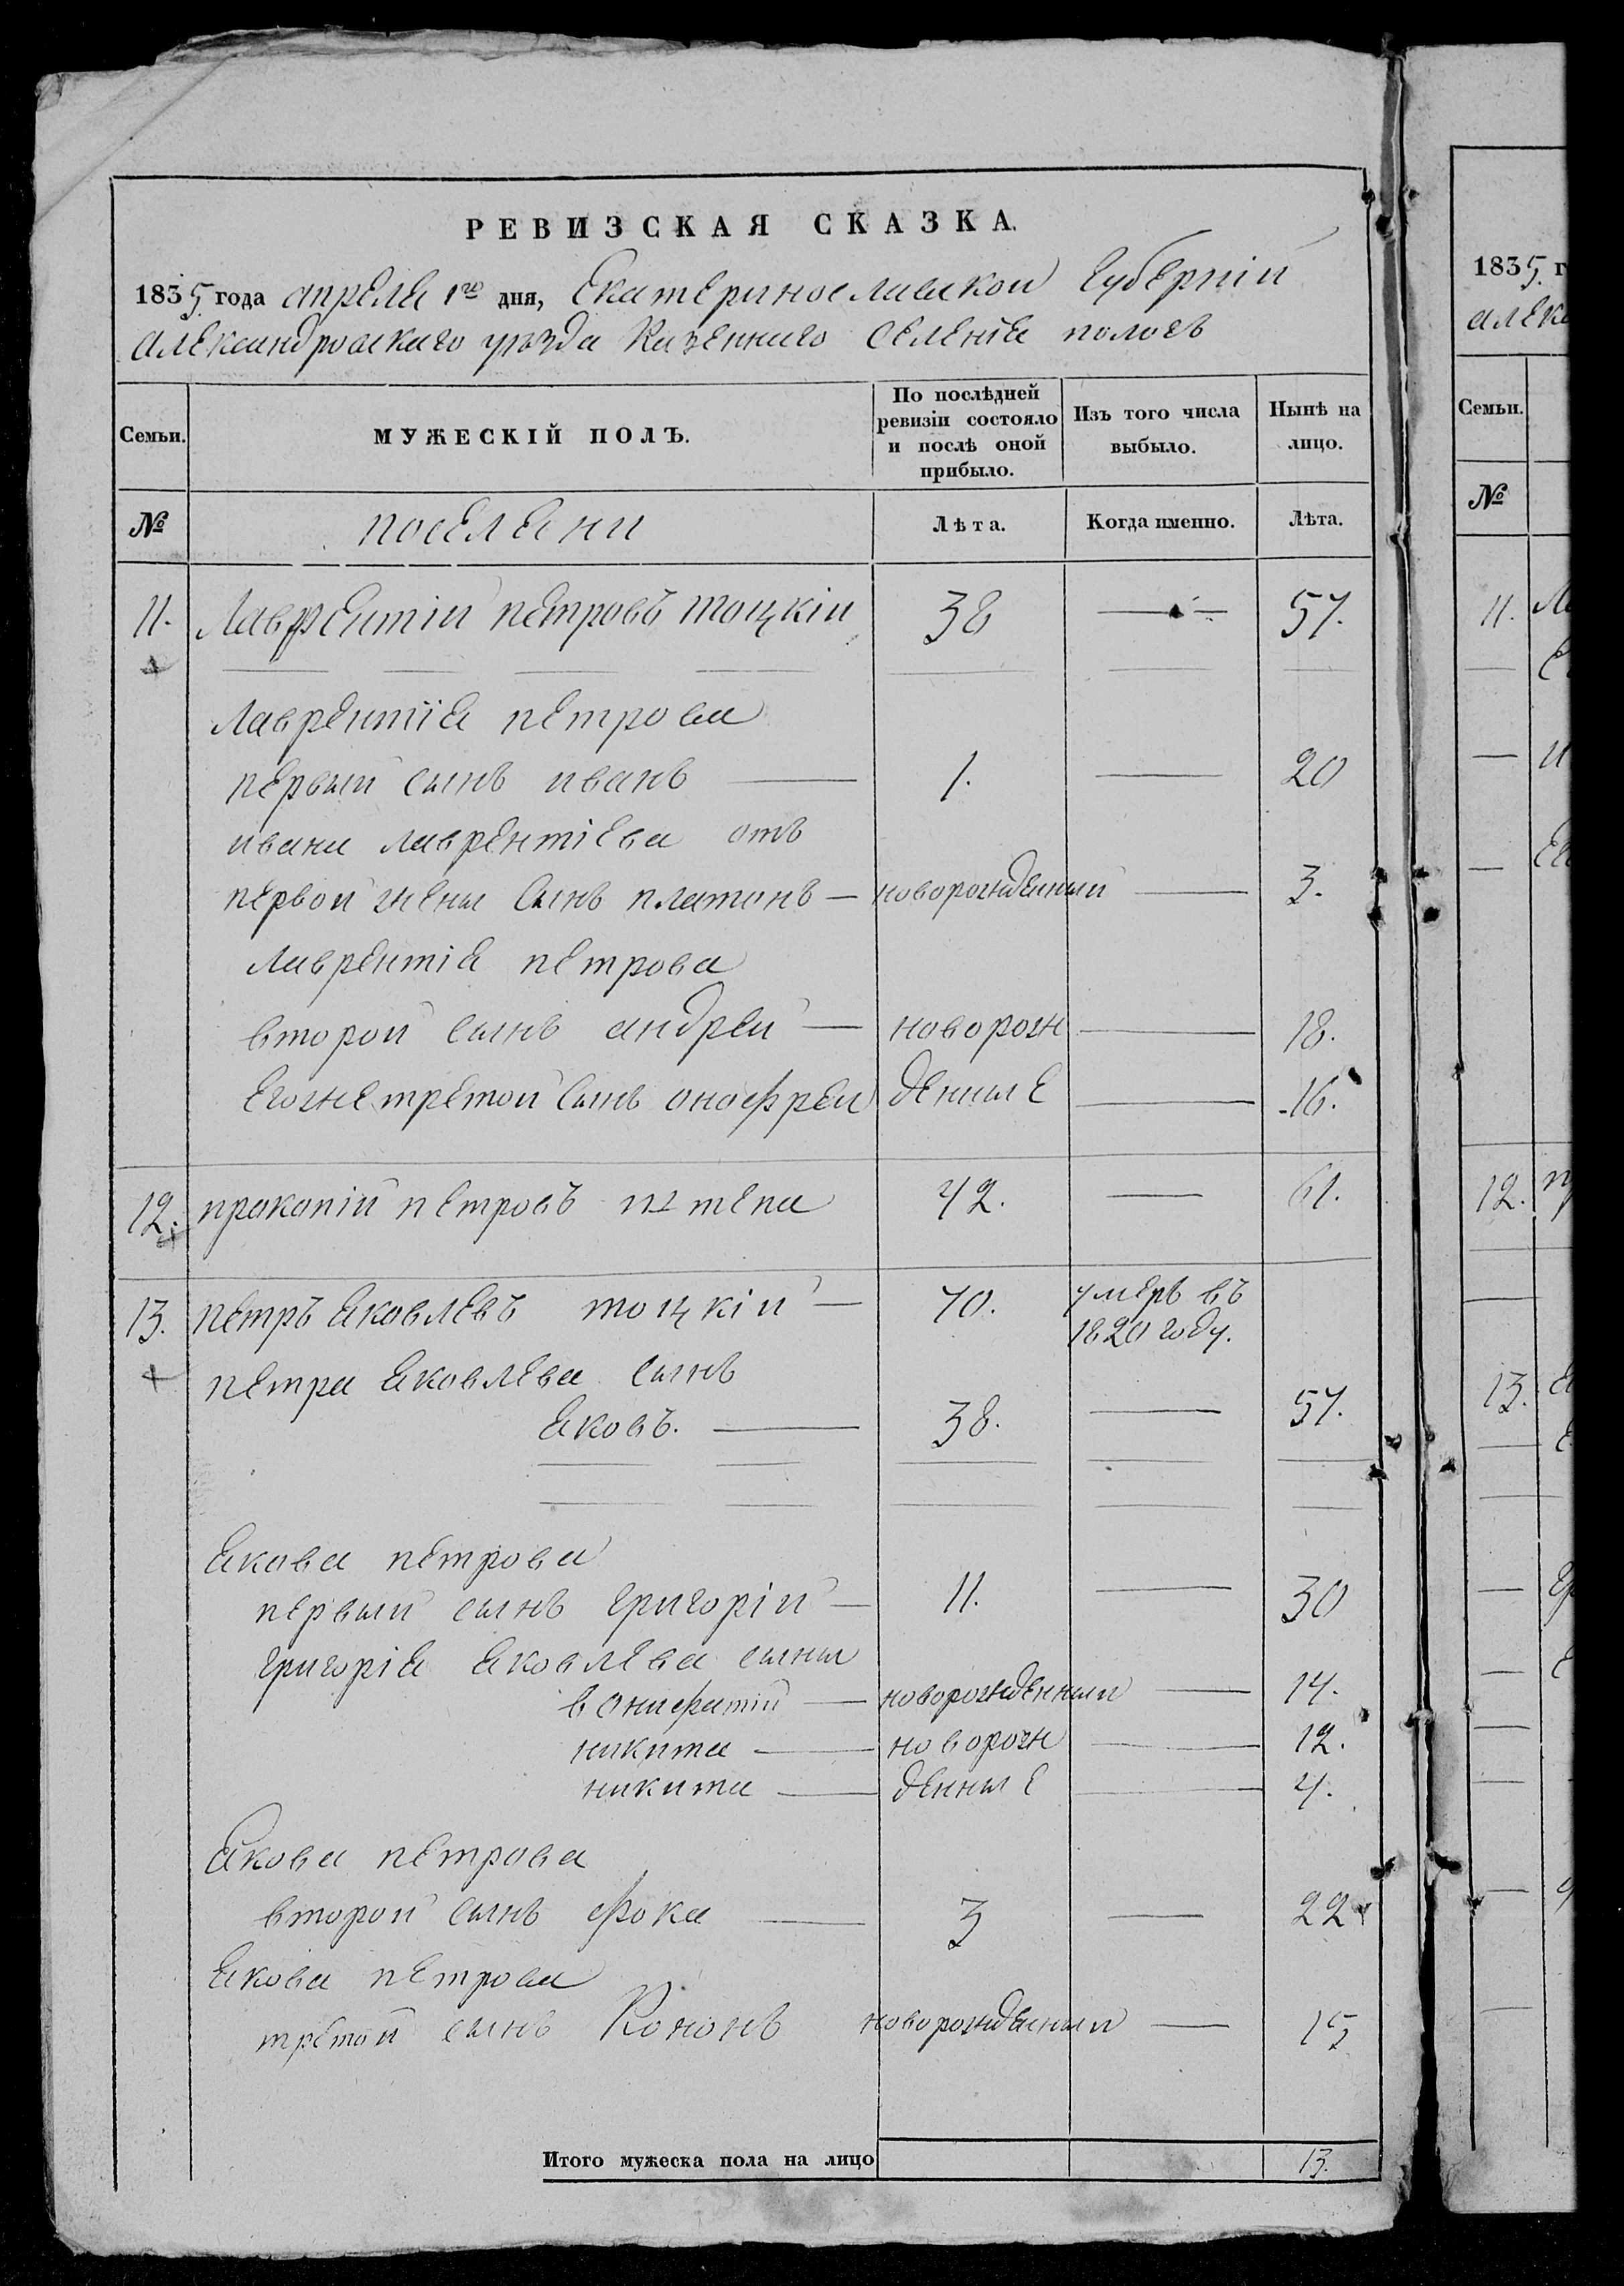 РЕВИЗСКАЯ СКАЗКА.
1835 года апреля 1го дня, Екатеринославской Губернии
Александровскаго уезда Казеннаго Селения пологъ
Семьи.
МУЖЕСКІЙ ПОЛЪ.
По послѣдней ревизіи состояло и послѣ оной прибыло.
Изъ того числа выбыло.
Нынѣ на лицо.
№ поселяни Лѣта. Когда именно. Лѣта.
11. Лаврентій петровъ тоцкій 38 — 57.
Лаврентія петрова
первый сынъ иванъ — 1. — 20
ивана лаврентіева отъ
первой жены сынъ платонъ — новорожденный — 3.
Лаврентія петрова
второй сынъ андрей — новорож — 18.
Егоже третой сынъ онофрей денные — 16.
12. пракопій петровъ 42. — 61.
13. петръ яковлевъ тоцкій — 70. умеръ въ
1820 году.
петра яковлева сынъ
яковъ. — 38. — 57.
якова петрова
первый сынъ григорій — 11. — 30
григорія яковлева сыны
вонифатій — новорожденный — 14.
никита — новорож — 12.
никита — денные — 4.
Якова петрова
второй сынъ фока — 3 — 22
якова петрова
третой сынъ Кононъ новорожденный — 15
Итого мужеска пола на лицо 13.
1835. г
алекс
Семьи.
№
11.
12.
13.